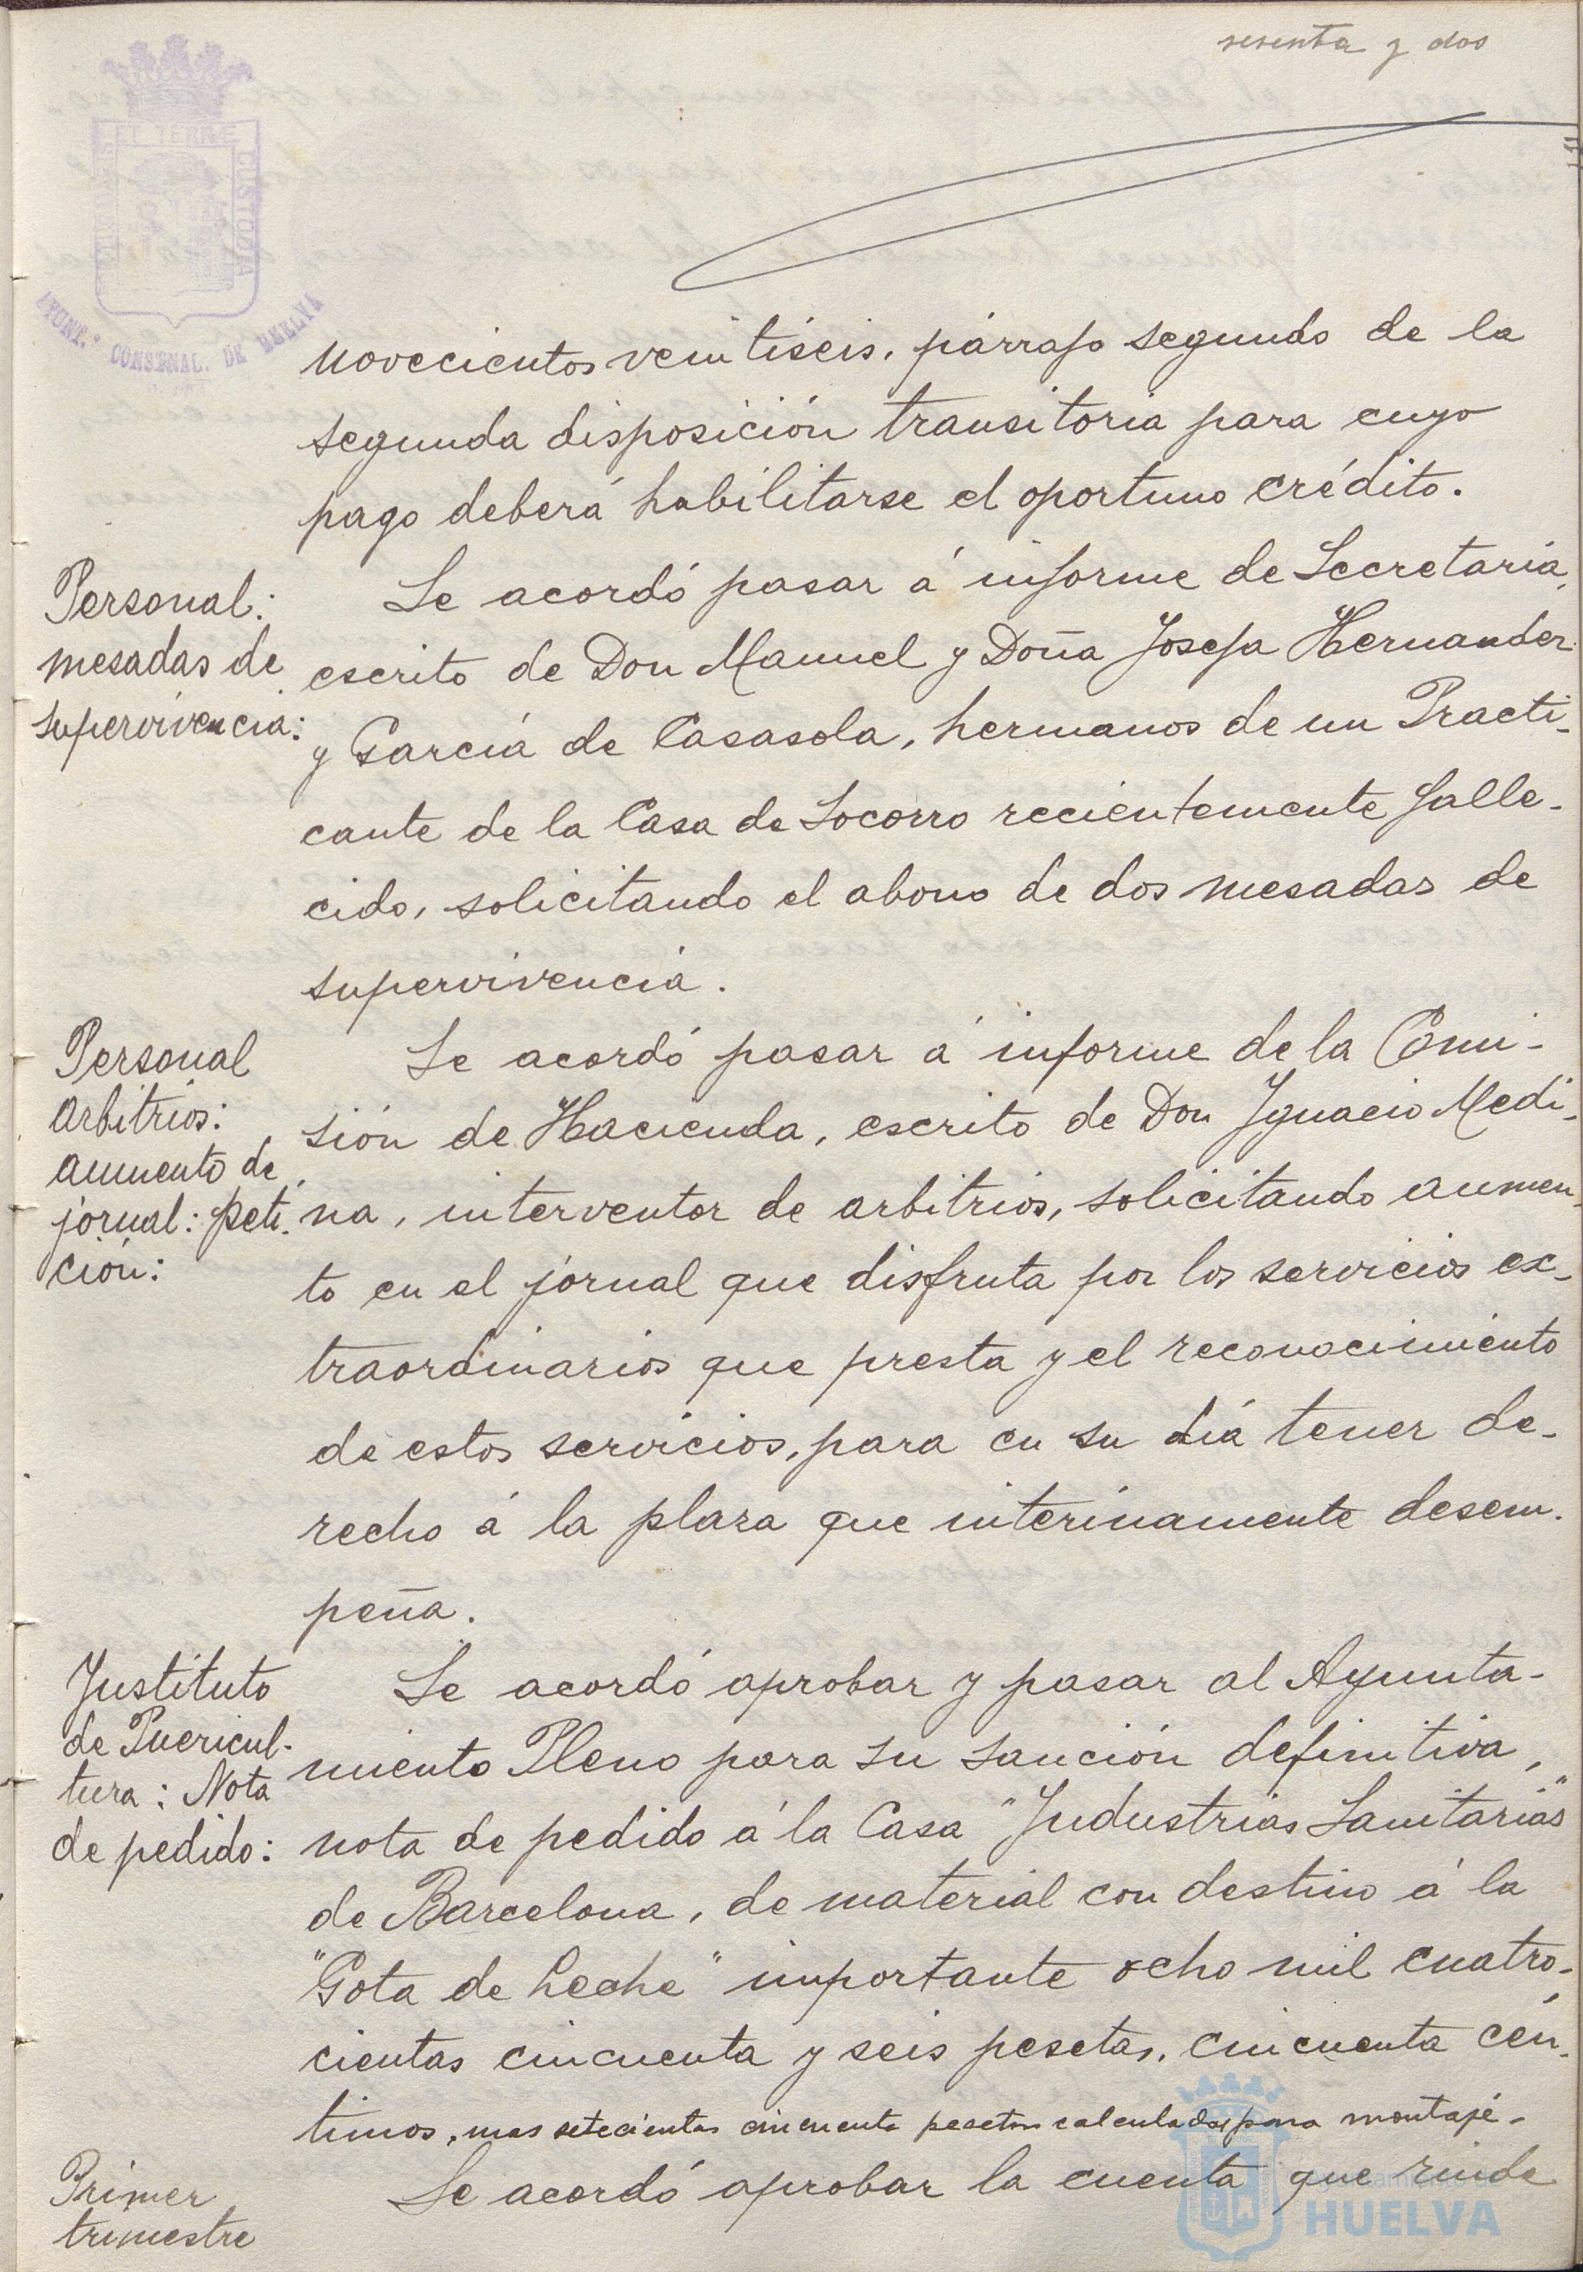 sesenta y dos
PORTUS MARIS ET TERRÆ CUSTODIA
AYUNT.º CONSTNAL. DE HUELVA
novecientos veintiséis, párrafo segundo de la
segunda disposición transitoria para cuyo
pago deberá habilitarse el oportuno crédito.
Personal:
mesadas de
supervivencia:
Se acordó pasar á informe de Secretaría,
escrito de Don Manuel y Doña Josefa Hernandez
y García de Casasola, hermanos de un Practi-
cante de la Casa de Socorro recientemente falle-
cido, solicitando el abono de dos mesadas de
supervivencia.
Personal
arbitrios:
aumento de
jornal: peti-
ción:
Se acordó pasar á informe de la Comi-
sión de Hacienda, escrito de Don Ignacio Medi-
na, interventor de arbitrios, solicitando aumen-
to en el jornal que disfruta por los servicios ex-
traordinarios que presta y el reconocimiento
de estos servicios, para en su día tener de-
recho á la plaza que interinamente desem-
peña.
Instituto
de Puericul-
tura: Nota
de pedido:
Se acordó aprobar y pasar al Ayunta-
miento Pleno para su sanción definitiva,
nota de pedido á la Casa "Industrias Sanitarias"
de Barcelona, de material con destino á la
"Gota de Leche" importante ocho mil cuatro-
cientas cincuenta y seis pesetas, cincuenta cén-
timos, mas setecientas cincuenta pesetas calculadas para montaje.
Primer
trimestre
Se acordó aprobar la cuenta que rinde
Ayuntamiento de
HUELVA